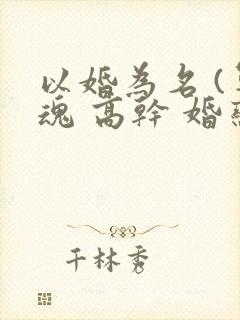 以婚為名(
魂 高幹 婚
千林秀